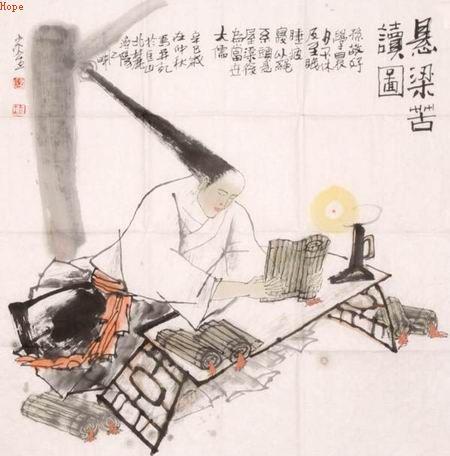 Hope
悬梁苦
讀圖
孫敬好
學晨
夕不休
及至眠
睡疲
寢以繩
系頭悬
屋梁後
為當世
大儒
在仲秋
北麓